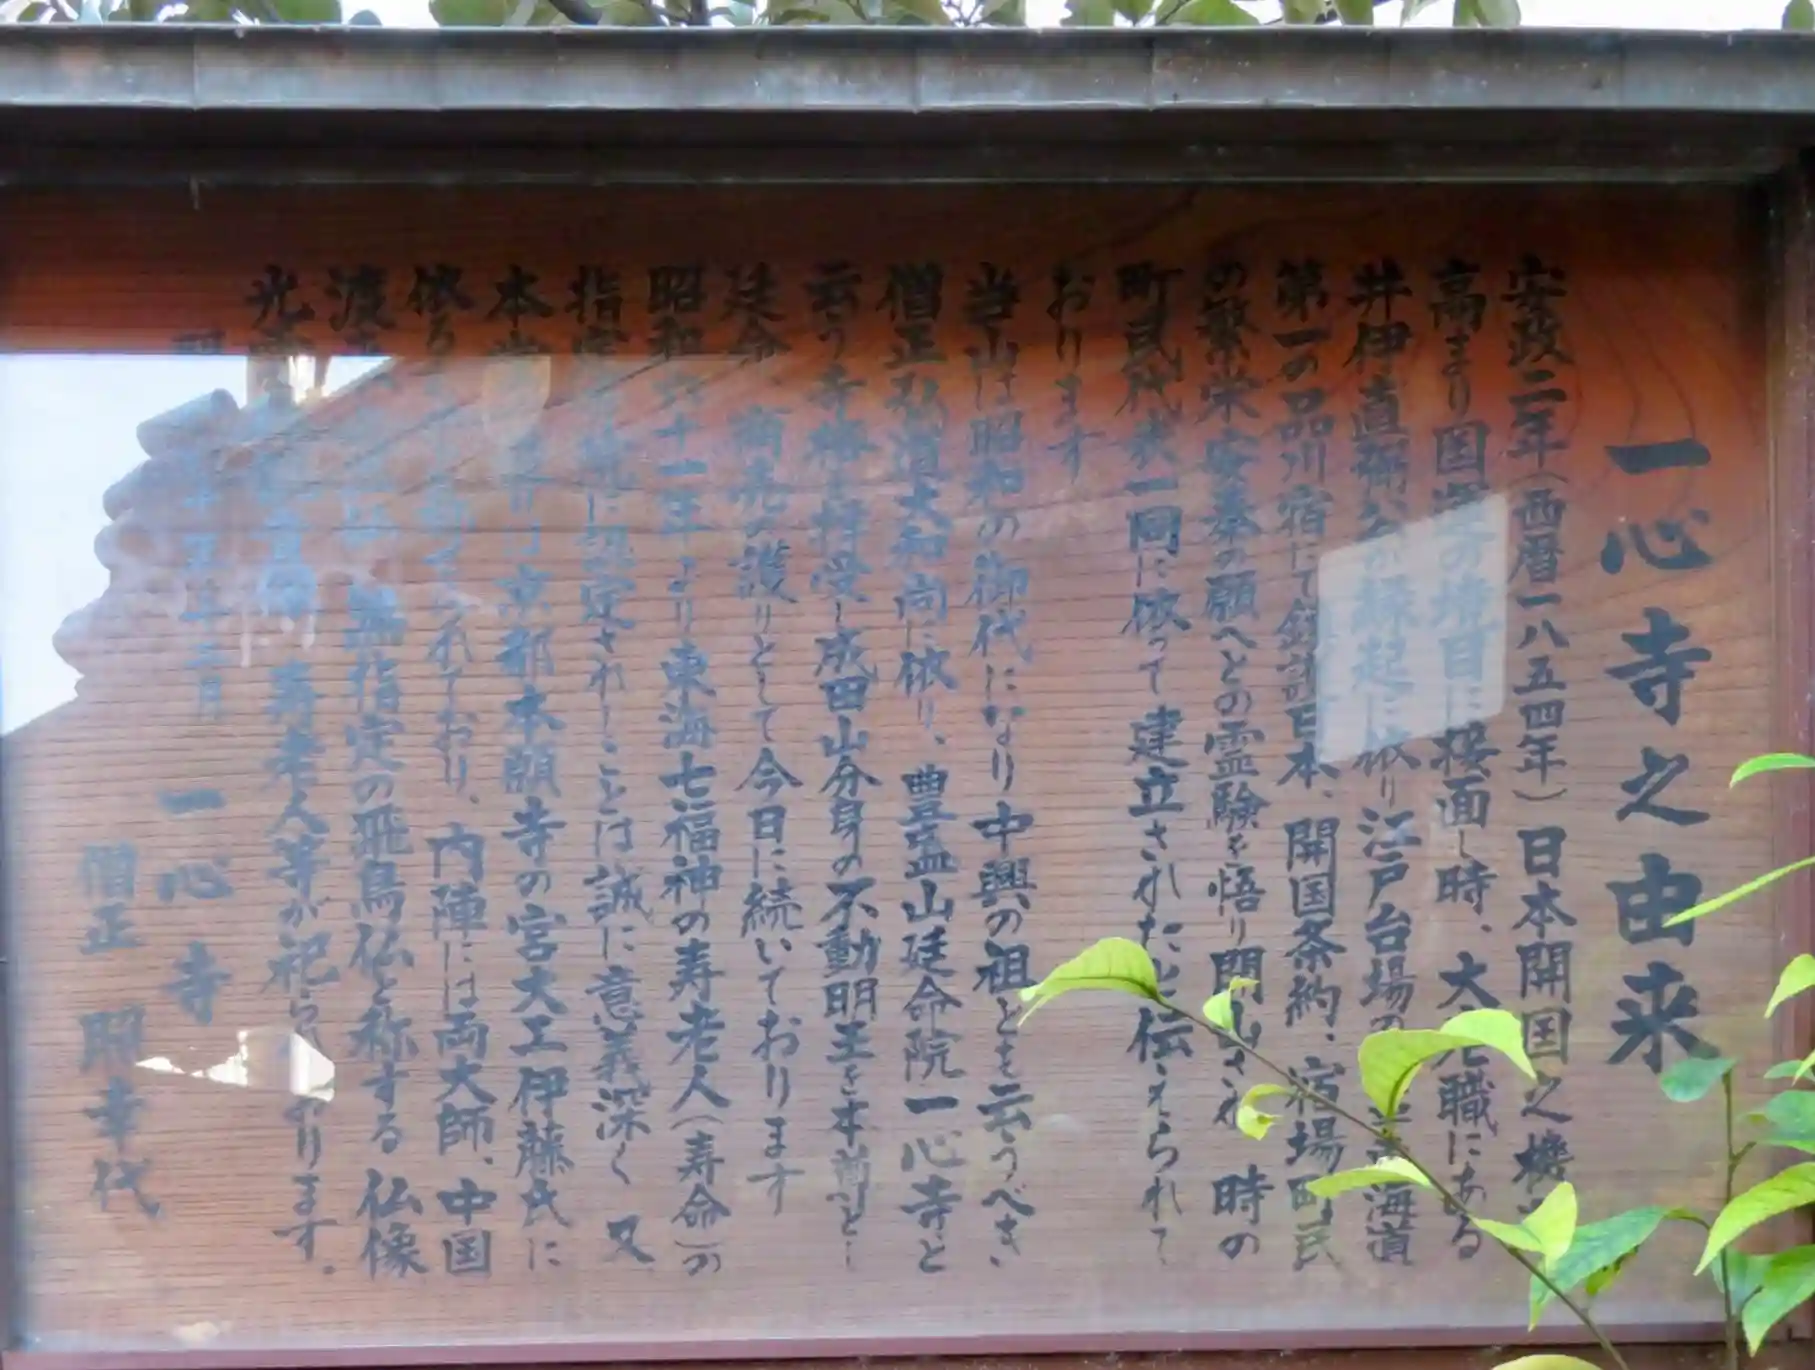 一心寺之由来
安政二年（西暦一八五四年）日本開国之機
高まり国の境目に接面し時、大老職にある
井伊直弼公が縁起に依り江戸台場の海道
第一の品川宿にて日本、開国条約、宿場町民
の繁栄安泰の願へとの霊験を悟り開山され 時の
町民代衣一同に依って建立されたと伝えられて
おります
当山は昭和の御代になり中興の祖とも云うべき、
僧正弘道大和尚に依り、豊盛山延命院一心寺と
云う寺格を拝受し成田山分身の不動明王を本尊とし
延命、商売の護りとして今日に続いております
昭和六十一年より東海七福神の寿老人（寿命）の
指定に認定されしことは誠に意義深く 又
本堂は京都本願寺の宮大工伊藤氏に
依るれており、内陣には両大師、中国
渡無指定の飛鳥仏と称する仏像
寿老人等が祀らおります。
年二月
一心寺
僧正 昭幸代